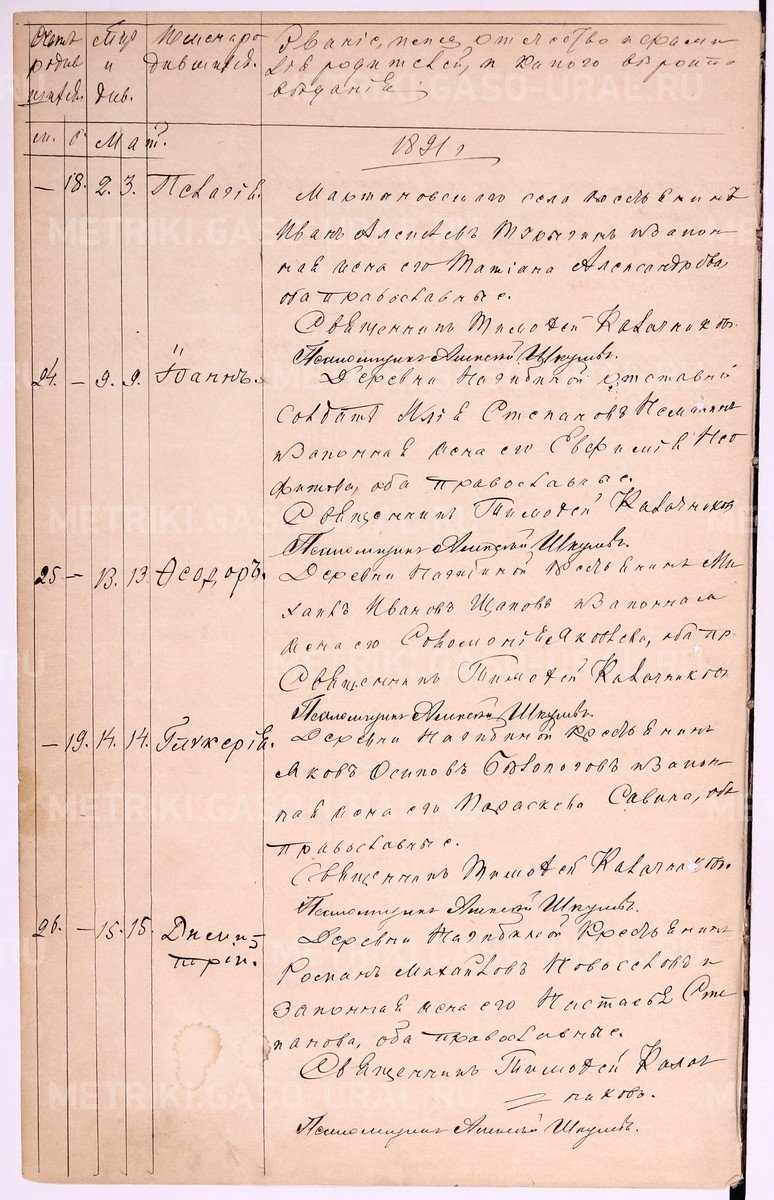 Счетъ Мѣс Имена ро Званіе, имя, отчество и фами
родив и дившихся. лія родителей, и какого вѣроис
шихся день. повѣданія.
м. ж. Маій.
1891 г
— 18. 2. 3. Пелагія. Мартыновскаго села крестьянинъ
Иванъ Алексѣевъ и закон
ная жена его Татіана Александрова,
оба православные.
Священникъ Тимоѳей Калачниковъ.
Псаломщикъ Алексѣй Шкулевъ.
24. — 9. 9. Іоаннъ. Деревни Нагибиной отставной
солдатъ Илія Степановъ
и законная жена его Евфимія Нео
фитова, оба православные.
Священникъ Тимоѳей Калачниковъ
Псаломщикъ Алексѣй Шкулевъ.
25 — 13. 13 Ѳеодоръ. Деревни Нагибиной крестьянинъ Ми
хаилъ Ивановъ Щаповъ и законная
жена его Соломонія Яковлева, оба пр.
Священникъ Тимоѳей Калачниковъ
Псаломщикъ Алексѣй Шкулевъ.
— 19. 14. 14. Гликерія. Деревни Нагибиной крестьянинъ
Яковъ Осиповъ Бѣлоноговъ и закон
ная жена его Параскева Савина, оба
православные.
Священникъ Тимоѳей Калачниковъ.
Псаломщикъ Алексѣй Шкулевъ.
26. — 15. 15. Дими Деревни Нагибиной крестьянинъ
трій. Романъ Михайловъ Новоселовъ и
законная жена его Настасья Сте
панова, оба православные.
Священникъ Тимоѳей Калач
никовъ.
Псаломщикъ Алексѣй Шкулевъ.
METRIKI.GASO-URAL.RU